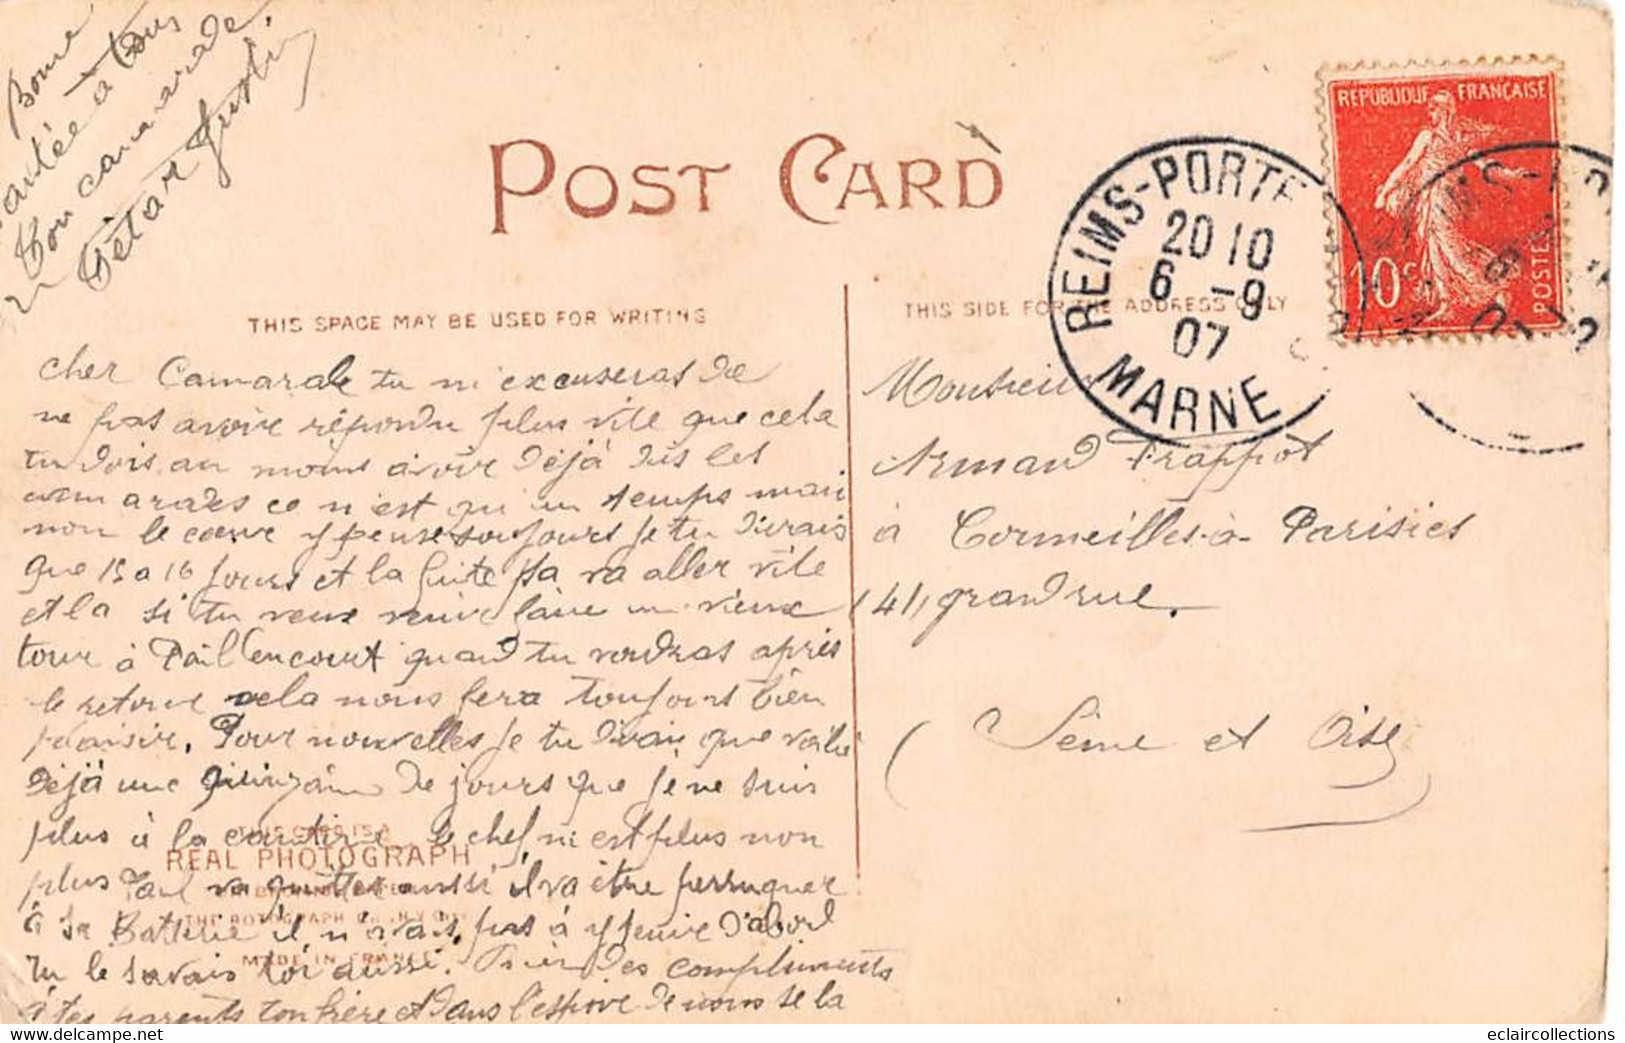 Bonne
Santée à tous
Ton camarade.
POST CARD
REPUBLIQUE FRANÇAISE
10c
POSTES
REIMS-PORTE
20 10
6 -9
07
MARNE
THIS SPACE MAY BE USED FOR WRITING
THIS SIDE FOR THE ADDRESS ONLY
cher Camarade tu m'excuseras de
ne pas avoir répondu plus vite que cela
tu dois au moins avoir déjà dis les
camarades ce n'est qu'un temps mai
non le cœur y pense toujours je tu dirais
que 15 a 16 jours et la fuite ça va aller vite
et la si tu veux venir faire un vieux
tour à Paillencourt quand tu voudras après
le retour cela nous fera toujours bien
plaisir. Pour nouvelles je tu dirai que voila
déjà une quinzaine de jours que je ne suis
plus à la cantine le chef n'est plus non
plus Paul va quitter aussi il va être perruquer
à sa Batterie il n'avais pas à y venir d'abord
tu le savais toi aussi. Bien des compliments
à tes parents ton frère et dans l'espoir de nous se la
THIS CARD IS A
REAL PHOTOGRAPH
THE ROTOGRAPH Co. N.Y.
MADE IN FRANCE
Monsieur
Armand Frappot
à Cormeilles-à-Parisies
41, grand rue.
(Seine et Oise)
eclaircollections